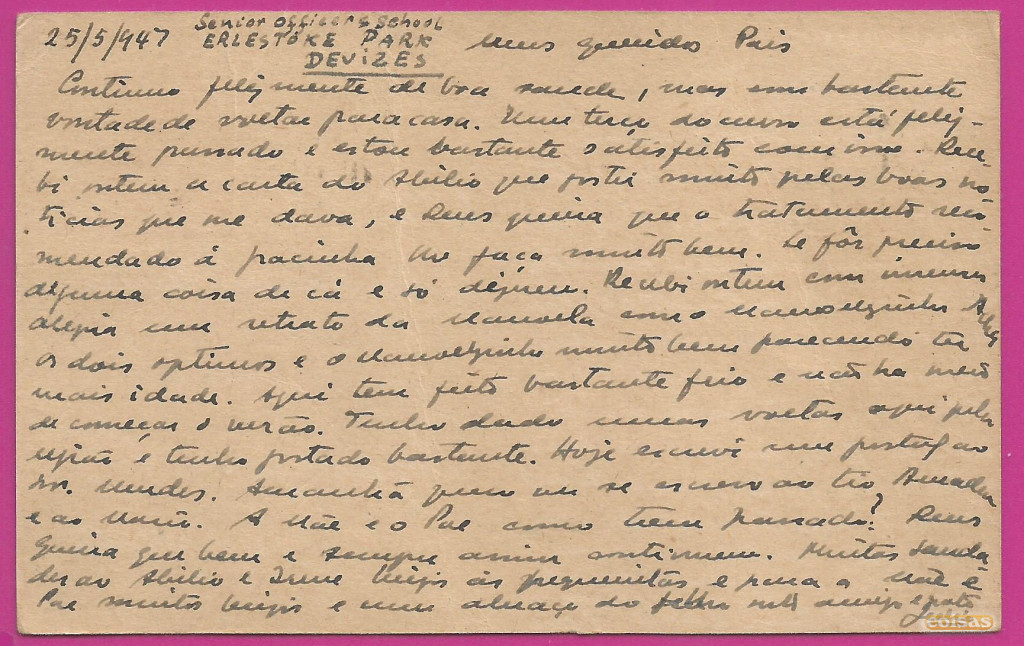 25/5/947 Senior Officers School
ERLESTOKE PARK
DEVIZES
Meus queridos Pais
Continuo felizmente de boa saude, mas com bastante
vontade de voltar para casa. Um terço do curso está feliz-
mente passado e estou bastante satisfeito com isso. Rece-
bi ontem a carta do Abilio que gostei muito pelas boas no
ticias que me dava, e Deus queira que o tratamento reco
mendado á lhe faça muito bem. Se fôr preciso
alguma coisa de cá e só dizerem. Recebi ontem com imensa
alegria um retrato da Manuela com o Manuelzinho
os dois optimos e o Manuelzinho muito bem parecendo ter
mais idade. Aqui tem feito bastante frio e não ha meio
de começar o verão. Tenho dado umas voltas aqui pela
região e tenho gostado bastante. Hoje escrevi um postal ao
Dr. Mendes. Amanhã quero ver se escrevo ao tio Amadeu
e ao Mario. A Mãe e o Pae como teem passado? Deus
queira que bem e sempre assim continuem. Muitas sauda
des ao Abilio e Irene beijos ás pequenitas, e para a Mãe e
Pae muitos beijos e um abraço do filho mto amigo e grato
coisas